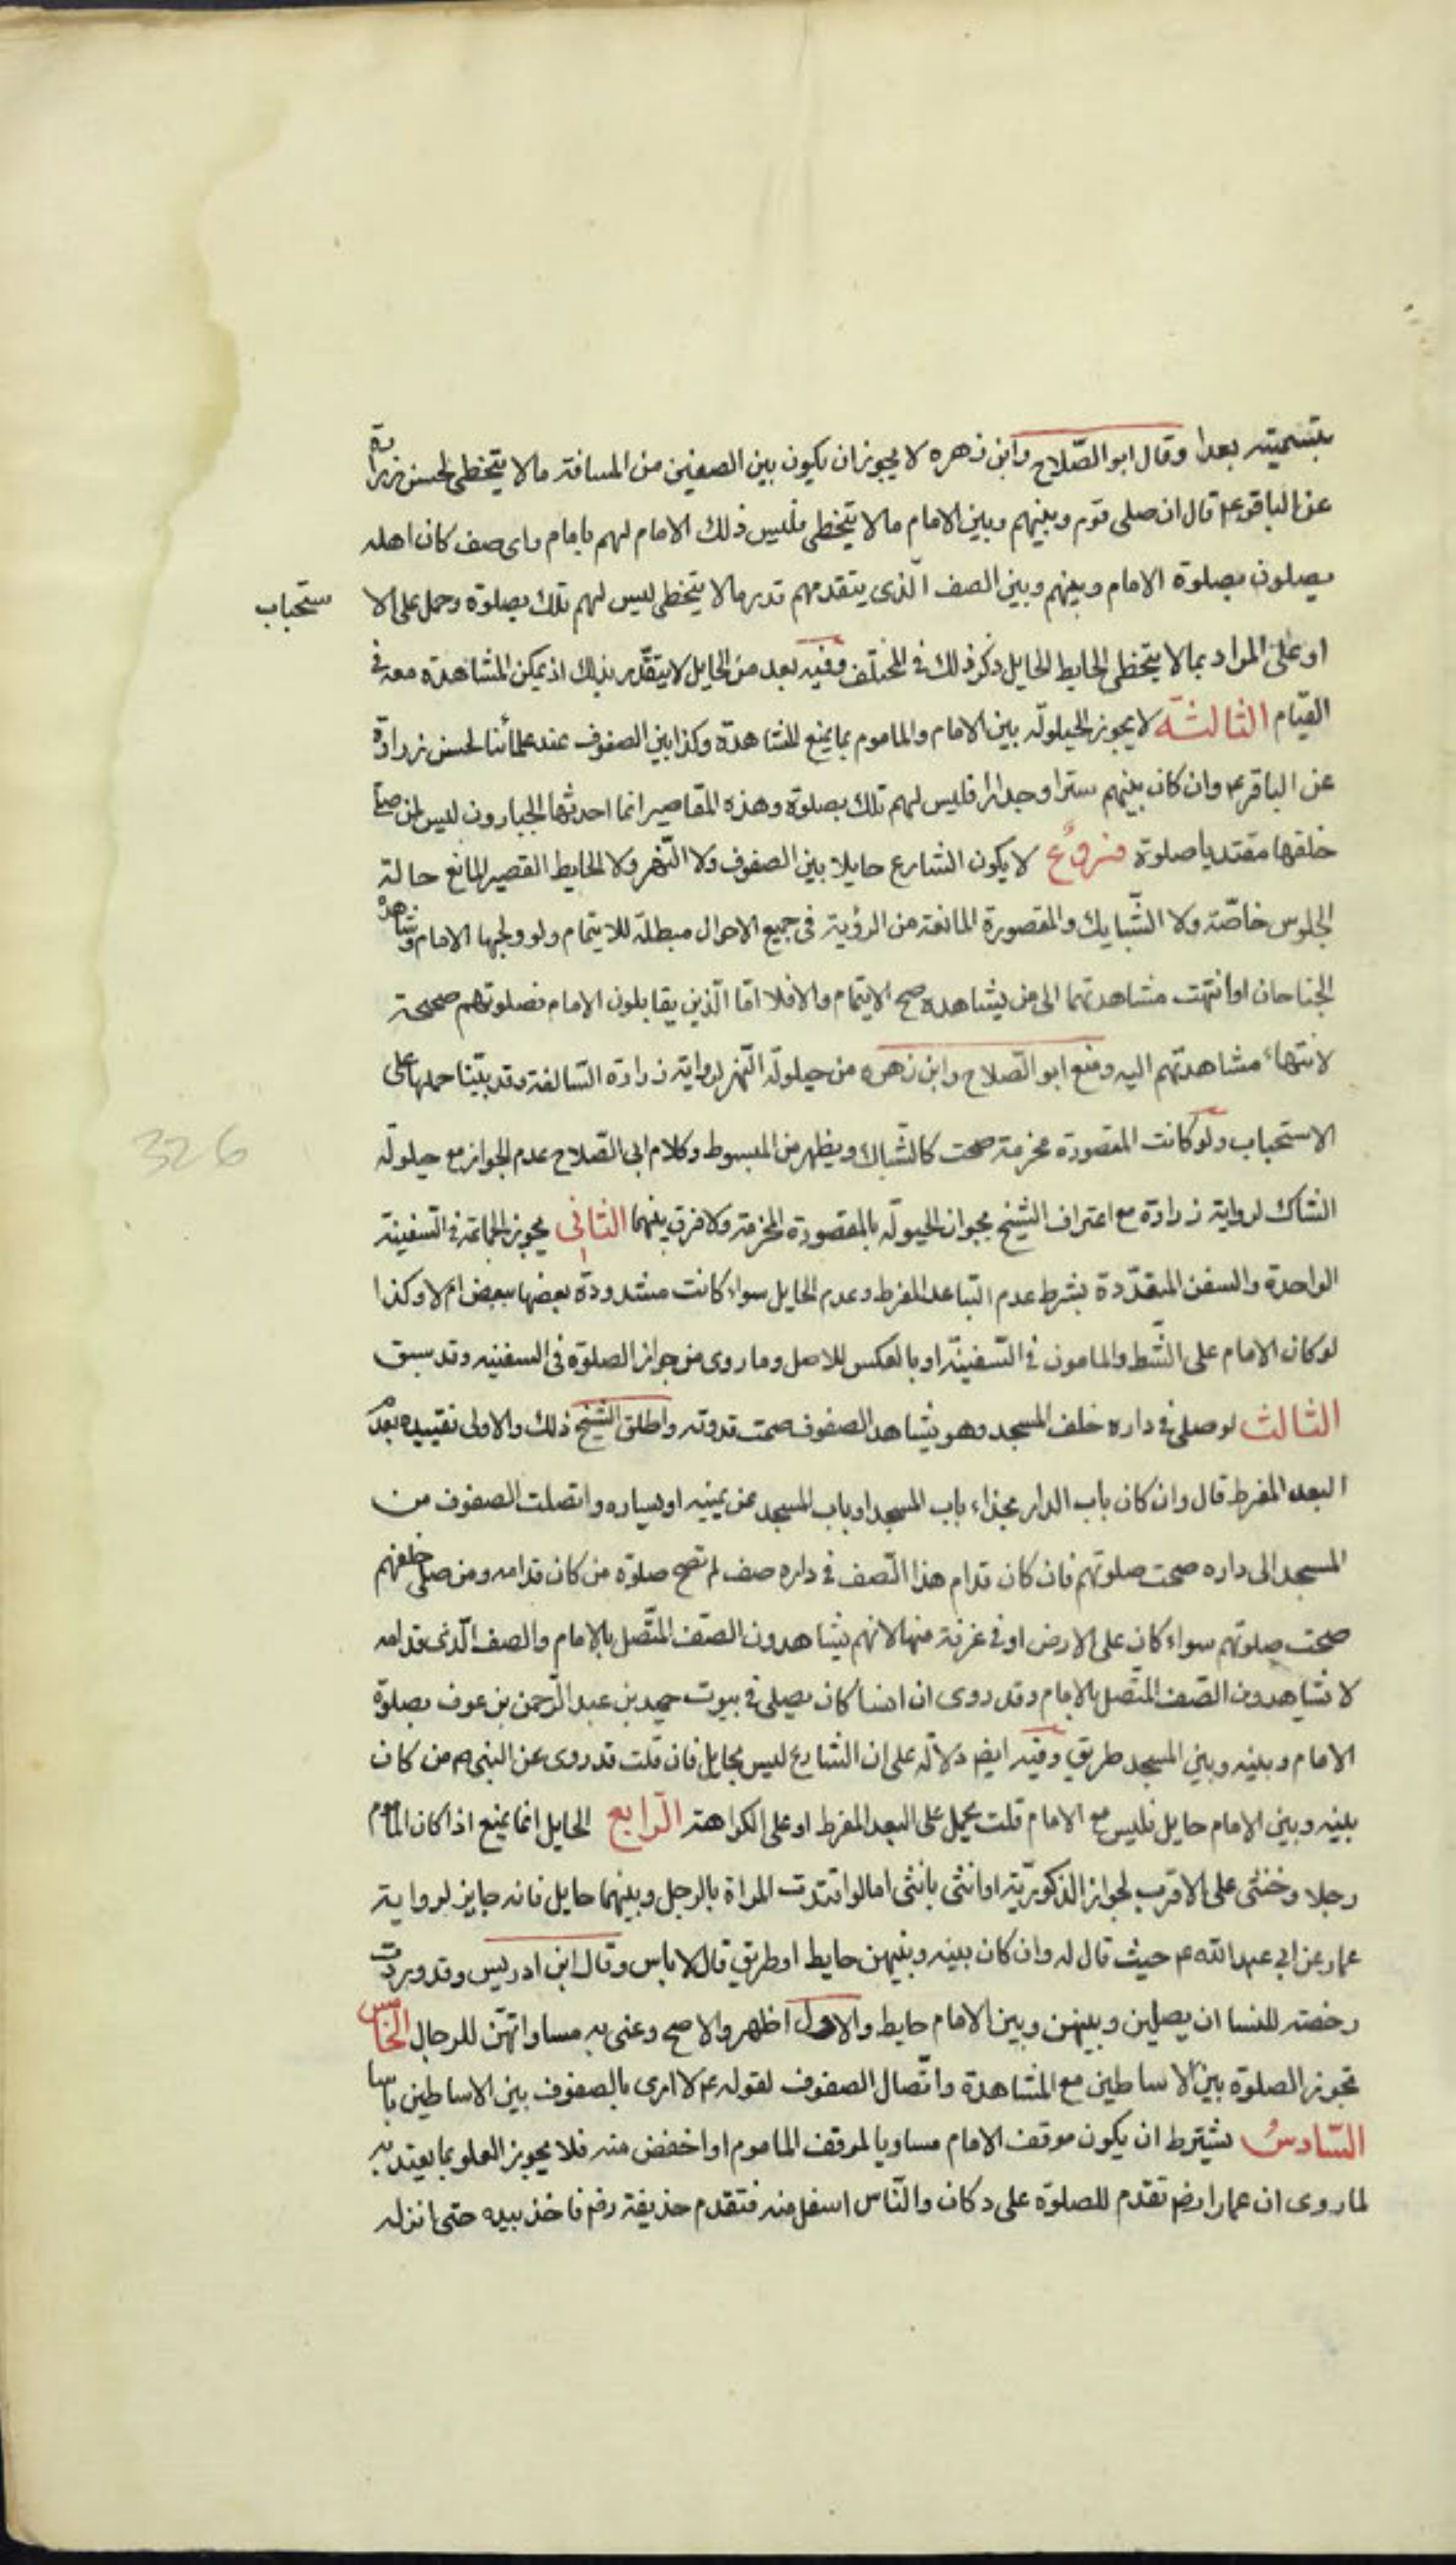 بتسميته بعدا وقال ابو الصّلاح وابن زهره لا يجوز ان يكون بين الصفين من المسافة مالا يتخطى لحسن زرارة
عن الباقر ع قال ان صلى قوم وبينهم وبين الامام مالا يتخطى فليس ذلك الامام لهم بامام واى صف كان اهله
يصلون بصلوة الامام وبينهم وبين الصف الّذى يتقدمهم قدر مالا يتخطى ليس لهم تلك بصلوة وحمل على الا
ستحباب
او على المراد بما لا يتخطى الحايط الحايل ذكر ذلك فى المختلف وفيه بعد من الحايل لا يتقدّر بذلك اذ يمكن المشاهدة معه فى
القيام الثالثة لا يجوز الحيلولة بين الامام والماموم بما يمنع المشاهدة وكذا بين الصفوف عند علمائنا لحسن زرارة
عن الباقر ع وان كان بينهم سترا وجدارا فليس لهم تلك بصلوة وهذه المقاصير انما احدثها الجبارون ليس لمن صلى
خلفها مقتديا صلوة فروع لا يكون الشارع حايلا بين الصفوف ولا النّهر ولا الحايط القصير المانع حالة
الجلوس خاصّة ولا الشّبابيك والمقصورة المانعة من الرؤية فى جميع الاحوال مبطلة للايتمام ولو ولجها الامام وشاهده
الجناحان او انتهت مشاهدتهما الى من يشاهده صح الايتمام والا فلا امّا الّذين يقابلون الامام فصلوتهم صحيحة
لانتهاء مشاهدتهم اليه ومنع ابو الصّلاح وابن زهره من حيلولة النّهر لرواية زرارة السّالفة وقد بيّنا حملها على
الاستحباب ولو كانت المقصورة مخرمة صحت كالشّباك ويظهر من المبسوط وكلام ابى الصّلاح عدم الجواز مع حيلولة
الشاك لرواية زرارة مع اعتراف الشيخ بجواز الحيولة بالمقصورة المخرمة ولا فرق بينهما الثانى يجوز الجماعة فى السّفينة
الواحدة والسفن المتعدّدة بشرط عدم التباعد المفرط وعدم الحايل سواء كانت مشدودة بعضها ببعض ام لا وكذا
لو كان الامام على الشّط والمامون فى السّفينة او بالعكس للاصل وما روى من جواز الصلوة فى السفينه وقد سبق
الثالث لو صلى فى داره خلف المسجد وهو يشاهد الصفوف صحت قدوته واطلق الشيخ ذلك والاولى تقييده بعدم
البعد المفرط قال وان كان باب الدار بحذاء باب المسجد او باب المسجد عن يمينه او يساره واتصلت الصفوف من
المسجد الى داره صحت صلوتهم فان كان قدام هذا الصّف فى داره صف لم تصح صلوة من كان قدامه ومن صلى خلفهم
صحت صلوتهم سواء كان على الارض او فى غرفة منها لانهم يشاهدون الصّف المتّصل بالامام والصف الّذى قدامه
لا يشاهدون الصّف المتّصل بالامام وقد روى ان انسا كان يصلى فى بيوت حميد بن عبد الرّحمن بن عوف بصلوة
الامام وبينه وبين المسجد طريق وفيه ايض دلالة على ان الشارع ليس بحايل فان قلت قد روى عن النبى ص من كان
بينه وبين الامام حايل فليس مع الامام قلت يحمل على البعد المفرط او على الكراهة الرّابع الحايل انما يمنع اذا كان الماموم
رجلا وخنثى على الاقرب لجواز الذكوريّة او انثى بانثى اما لو اقتدت المراة بالرجل وبينهما حايل فانه جايز لرواية
عمار عن ابى عبد الله ع حيث قال له وان كان بينه وبينهن حايط او طريق قال لا باس وقال ابن ادريس وقد وردت
رخصة للنسا ان يصلين وبينهن وبين الامام حايط والاول اظهر والاصح وعنى به مساواتهنّ للرجال الخامس
تجوز الصلوة بين الاساطين مع المشاهدة واتّصال الصفوف لقوله ع لا ارى بالصفوف بين الاساطين باسا
السّادس يشترط ان يكون موقف الامام مساويا لموقف الماموم او اخفض منه فلا يجوز العلو بما يعتد به
لما روى ان عمارا رض تقدم للصلوة على دكان والنّاس اسفل منه فتقدم حذيفة رض فاخذ بيده حتى انزله
326